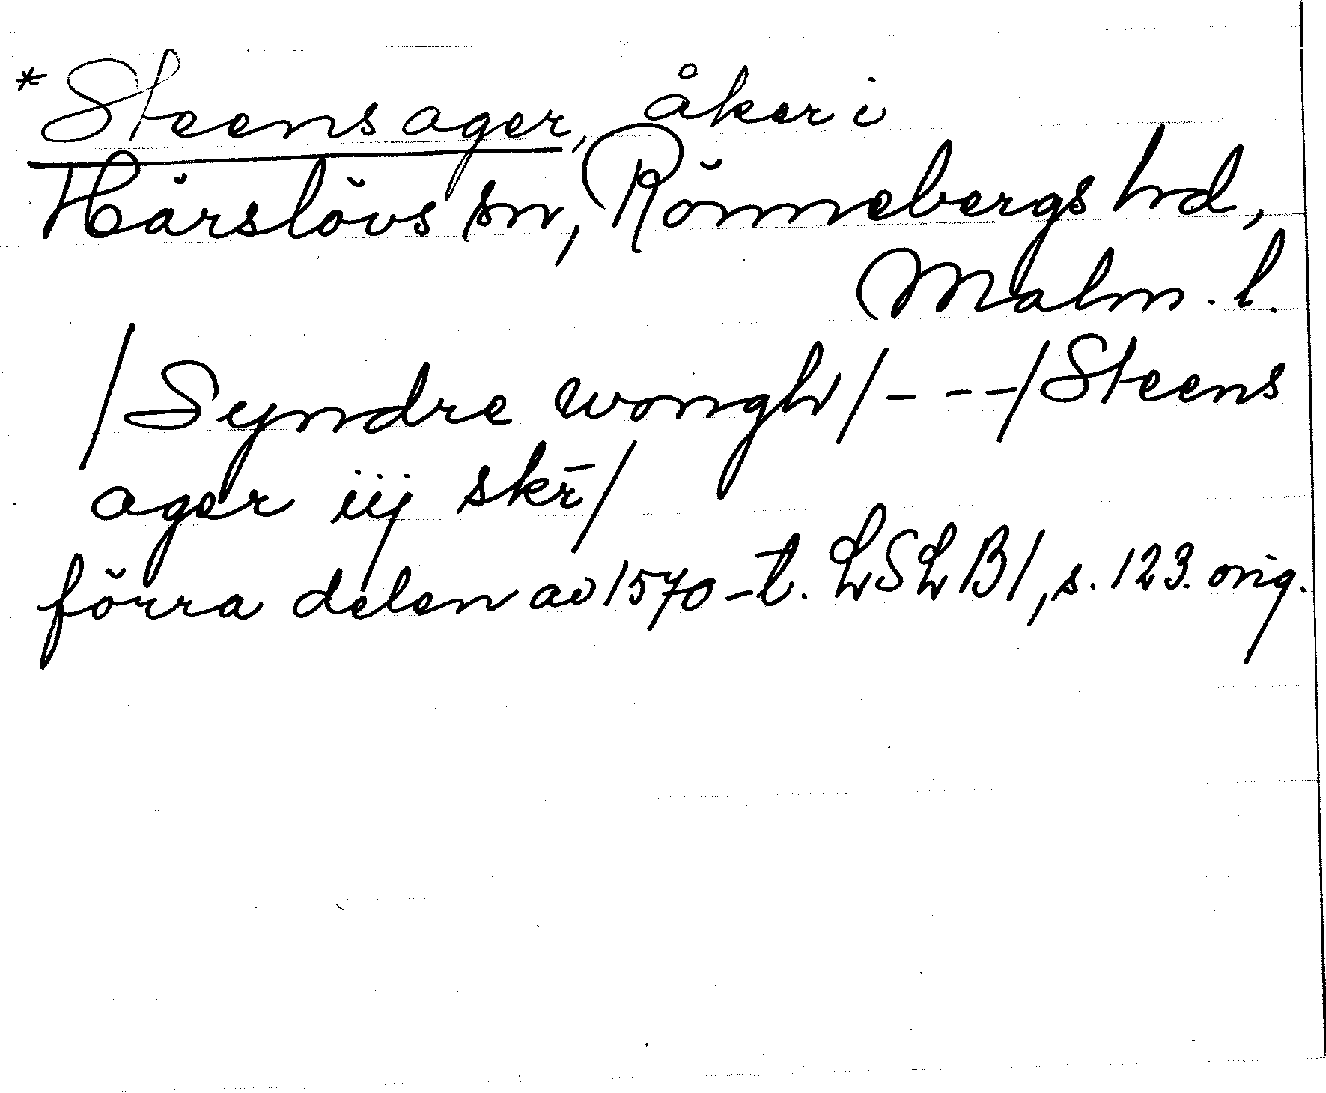 *Steensager, åker i
Hårslövs sn, Rönnebergs hd,
Malm. l.
/Syndre wongh/---/Steens
ager iij skr̄/
förra delen av 1570-t. LSLB1, s. 123. orig.